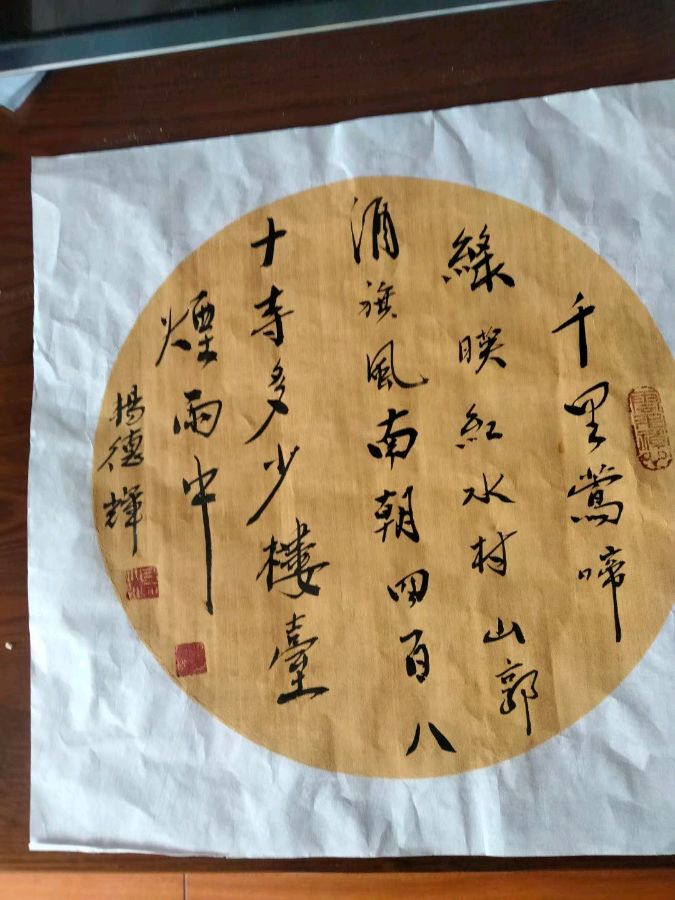 千里鶯啼
綠暎紅水村山郭
酒旗風南朝四百八
十寺多少樓臺
煙雨中
楊德輝